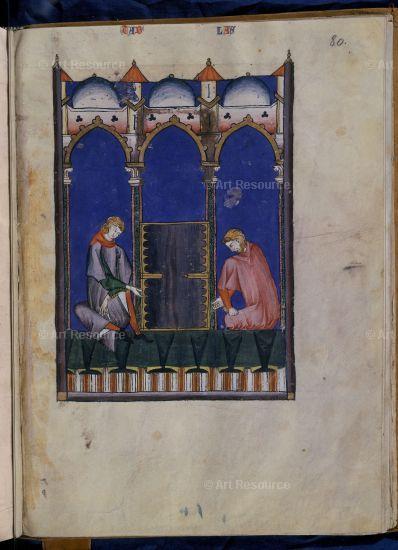 TAB LAS
80.
© Art Resource
© Art Resource
© Art Resource
© Art Resource
© Art Resource
© Art Resource